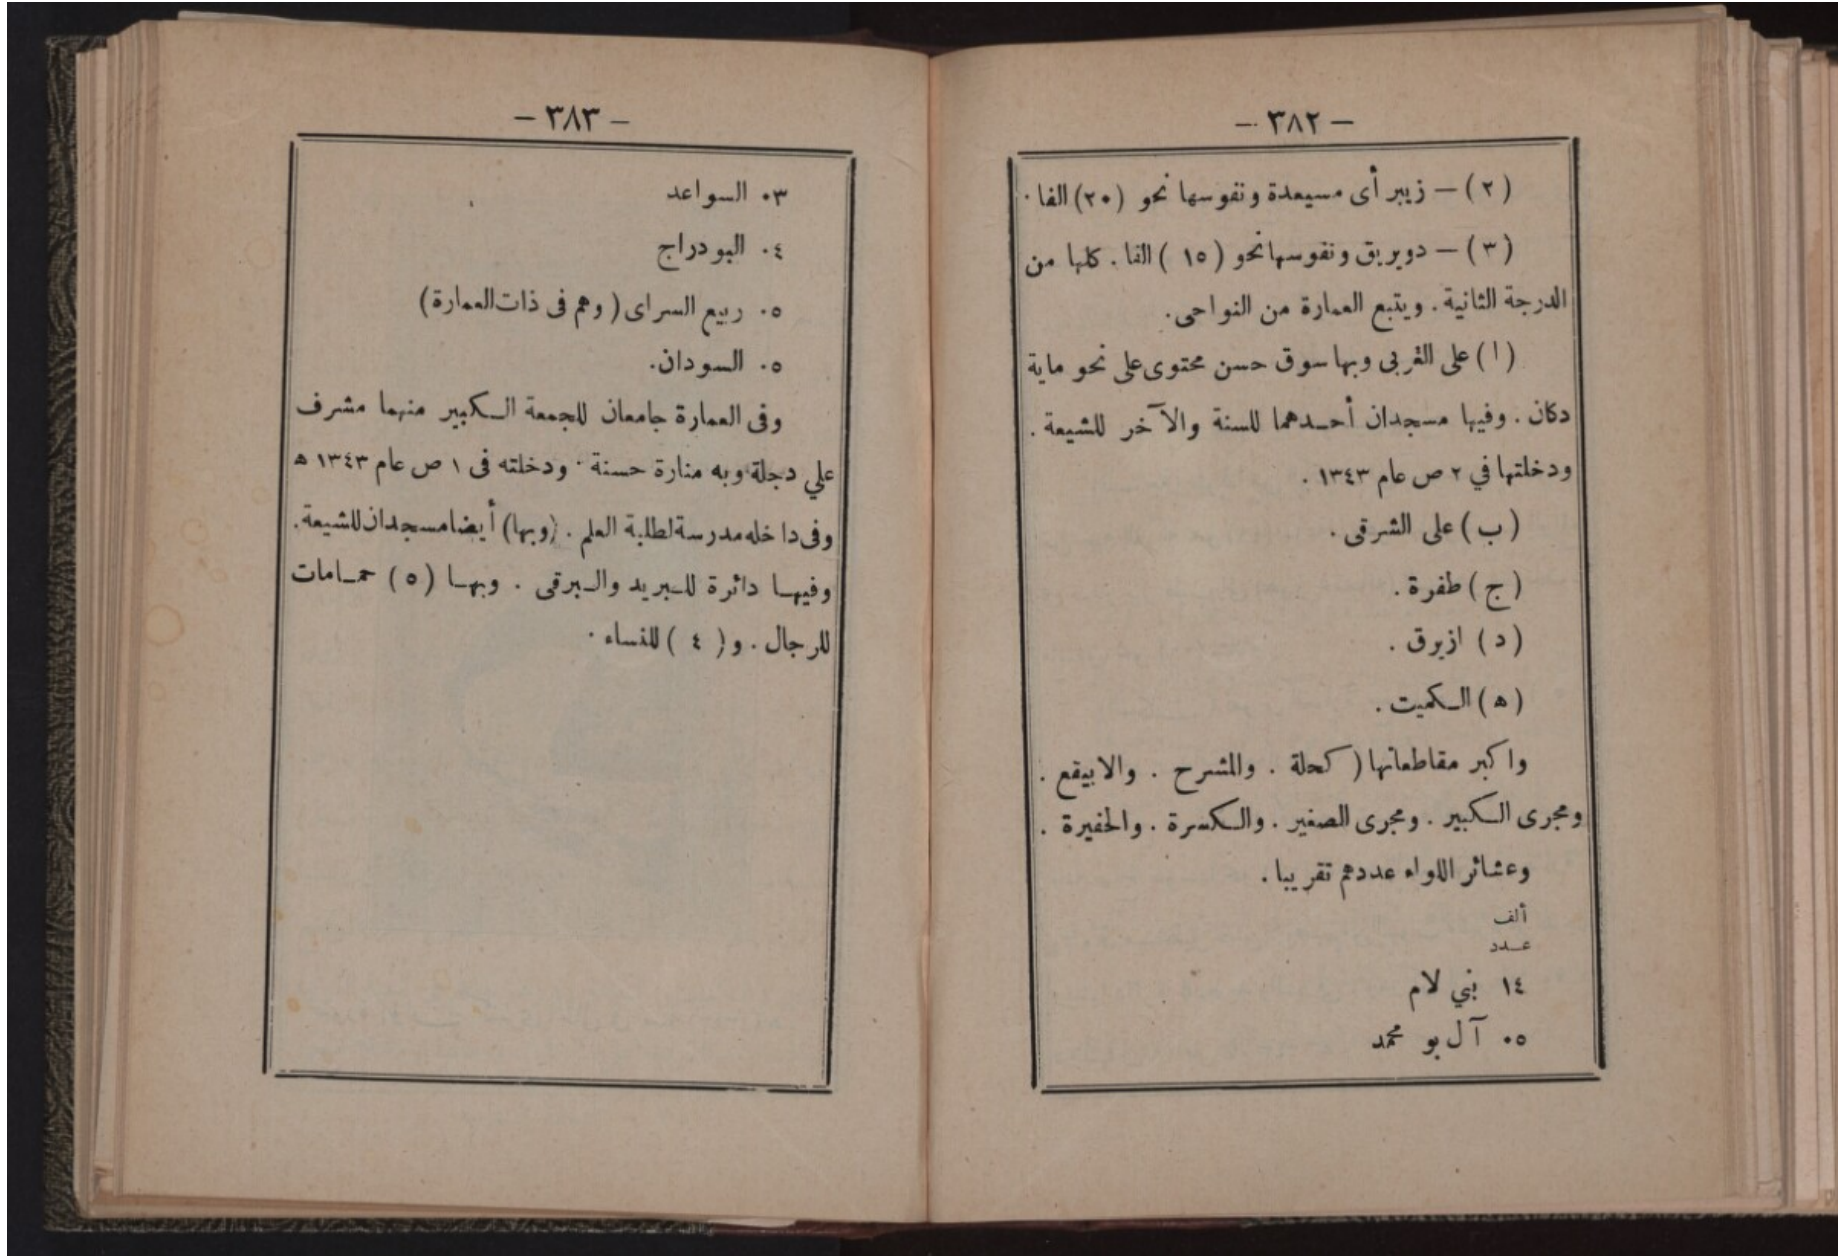 — ٣٨٢ —
(٢) — زيبر أى مسيعدة ونفوسها نحو (٢٠) الفا.
(٣) — دويريق ونفوسها نحو (١٥) الفا. كلها من
الدرجة الثانية. ويتبع العمارة من النواحى.
(ا) على الغربى وبها سوق حسن محتوى على نحو ماية
دكان. وفيها مسجدان أحدهما للسنة والآخر للشيعة.
ودخلتها في ٢ ص عام ١٣٤٣.
(ب) على الشرقى.
(ج) طفرة.
(د) ازيرق.
(ه) الكميت.
واكبر مقاطعاتها (كحلة. والمشرح. والابيقع.
ومجرى الكبير. ومجرى الصغير. والكسرة. والحفيرة.
وعشائر اللواء عددهم تقريبا.
ألف
عدد
١٤ بني لام
٠٥ آل بو محمد
— ٣٨٣ —
٠٣ السواعد
٠٤ البودراج
٠٥ ربيع السراى (وهم فى ذات العمارة)
٠٥ السودان.
وفى العمارة جامعان للجمعة الكبير منهما مشرف
علي دجلة وبه منارة حسنة. ودخلته فى ١ ص عام ١٣٤٣ ه
وفى داخله مدرسة لطلبة العلم. (وبها) أيضا مسجدان للشيعة.
وفيها دائرة للبريد والبرقى. وبها (٥) حمامات
للرجال. و(٤) للنساء.